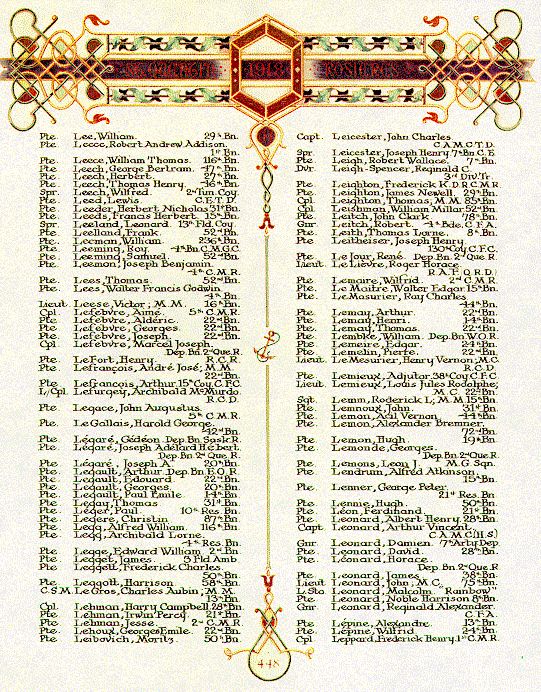 Pte. Lee, William. 29th Bn.
Pte. Leece, Robert Andrew Addison.
1st Bn.
Pte. Leece, William Thomas. 116th Bn.
Pte. Leech, George Bertram. 47th Bn.
Pte. Leech, Herbert. 27th Bn.
Pte. Leech, Thomas Henry. 36th Bn.
Spr. Leech, Wilfred. 2nd Tun. Coy.
Pte. Leed, Lewis. C.E.T.D.
Pte. Leeder, Herbert Nicholas. 31st Bn.
Pte. Leeds, Francis Herbert. 15th Bn.
Spr. Leeland, Leonard. 13th Fld. Coy.
Pte. Leelland, Frank. 52nd Bn.
Ptr. Leeman, William. 236th Bn.
Pte. Leeming, Roy. 4th Bn. C.M.G.C.
Pte. Leeming, Samuel. 52nd Bn.
Pte. Leemon, Joseph Benjamin.
4th C.M.R.
Pte. Lees, Thomas. 52nd Bn.
Pte. Lees, Walter Francis Godwin.
4th Bn.
Lieut Leese, Victor; M.M. 16th Bn.
Cpl. Lefebvre, Aimé. 5th C.M.R.
Pte. Lefebvre, Aldéric. 22nd Bn.
Pte. Lefebvre, Georges. 22nd Bn.
Pte. Lefebvre, Joseph. 22nd Bn.
Cpl. Lefebvre, Marcel Joseph.
Dep. Bn. 2nd Que. R.
Pte. Le Fort, Henry. R.C.R.
Pte. Lefrançois, André José; M.M.
22nd Bn.
Pte. Lefrancois, Arthur. 15th Coy. C.F.C.
L/Cpl. Lefurgey, Archibald McMurdo.
R.C.D.
Pte. Legace, John Augustus.
5th C.M.R.
Pte. Le Gallais, Harold George.
42nd Bn.
Pte. Légaré, Gédéon. Dep. Bn. Sask. R.
Pte. Legaré, Joseph Adélard Hébert.
Dep. Bn. 2nd Que. R.
Pte. Légaré, Joseph A. 20th Bn.
Pte. Legault, Arthur. Dep. Bn. E.O.R.
Pte. Legault, Edouard. 22nd Bn.
Pte. Legault, Georges. 20th Bn.
Pte. Legault, Paul Emile. 14th Bn.
Pte. Legay, Thomas. 31st Bn.
Pte. Léger, Paul. 10th Res. Bn.
Pte. Legere, Christin. 87th Bn.
Pte. Legg, Alfred William. 116th Bn.
Pte. Legg, Archibald Lorne.
4th Res. Bn.
Pte. Legge, Edward William. 2nd Bn.
Pte. Legget, James. 3rd Fld. Amb.
Pte. Leggett, Frederick Charles.
50th Bn.
Pte. Leggott, Harrison. 58th Bn.
C.S.M. Le Gros, Charles Aubin; M.M.
13th Bn.
Cpl. Lehman, Harry Campbell. 128th Bn.
Pte. Lehman, Irwin Percy. 21st Bn.
Pte. Lehman, Jesse. 2nd C.M.R.
Pte. Lehoux, Georges Emile. 22nd Bn.
Pte. Leibovich, Moritz. 50th Bn.
Capt. Leicester, John Charles.
C.A.M.C.T.D.
Spr. Leicester, Joseph Henry. 7th Bn. C.E.
Pte. Leigh, Robert Wallace. 7th Bn.
Dvr. Leigh-Spencer, Reginald C.
3rd Div. Tr.
Pte. Leighton, Frederick K. D. R.C.M.R.
Pte. Leighton, James Newell. 29th Bn.
Cpl. Leighton, Thomas, M.M. 85th Bn.
Cpl. Leishman, William Millar. 52nd Bn.
Pte. Leitch, John Clark. 78th Bn.
Gnr. Leitch, Robert. 4th Bde. C.F.A.
Pte. Leith, Thomas Lorne. 8th Bn.
Pte. Leitheiser, Joseph Henry.
130th Coy. C.F.C.
Pte. Le Jour, René. Dep. Bn. 2nd Que. R.
Lieut Le Lièvre, Roger Horace.
R.A.F. (Q.R.D.)
Pte. Lemaire, Wilfrid. 2nd C.M.R.
Pte. Le Maitre, Walter Edgar. 15th Bn.
Pte. Le Masurier, Ray Charles.
44th Bn.
Pte. Lemay, Arthur. 22nd Bn.
Pte. Lemay, Henri. 14th Bn.
Pte. Lemay, Thomas. 22nd Bn.
Pte. Lembke, William. Dep. Bn. W.O.R.
Pte. Lemeire, Edgar. 24th Bn.
Pte. Lemelin, Pierre. 22nd Bn.
Lieut. Le Mesurier, Henry Vernon; M.C.
R.C.D.
Pte. Lemieux, Adjutor. 38th Coy. C.F.C.
Lieut. Lemieux, Louis Jules Rodolphe;
M.C. 22nd Bn.
Sgt. Lemm, Roderick L; M.M. 15th Bn.
Pte. Lemnoux, John. 31st Bn.
Pte. Lemon, Acil Vernon. 44th Bn.
Pte. Lemon, Alexander Bremner.
72nd Bn.
Pte. Lemon, Hugh. 19th Bn.
Pte. Lemonde, Georges.
Dep. Bn. 2nd Que. R.
Pte. Lemons, Leon J. M.G. Sqn.
Pte. Lendrum, Alfred Atkinson.
15th Bn.
Pte. Lenner, George Peter.
21st Res. Bn.
Pte. Lennie, Hugh. 50th Bn.
Pte. Léon, Ferdinand. 21st Bn.
Pte. Leonard, Albert Henry. 28th Bn.
Capt. Leonard, Arthur Vincent.
C.A.M.C. (H.S.)
Gnr. Leonard, Damien. 7th Arty. Dep.
Pte. Leonard, David. 28th Bn.
Pte. Leonard, Horace.
Dep. Bn. 2nd Que. R.
Pte. Leonard, James. 38th Bn.
Lieut. Leonard, John, M.C. 75th Bn.
L. Sto. Leonard, Malcolm "Rainbow"
Pte. Leonard, Noble Harrison. 8th Bn.
Gnr. Leonard, Reginald Alexander.
C.F.A.
Pte. Lépine, Alexandre. 13th Bn.
Pte. Lépine, Wilfrid. 24th Bn.
Cpl. Leppard, Frederick Henry. 1st C.M.R.
448